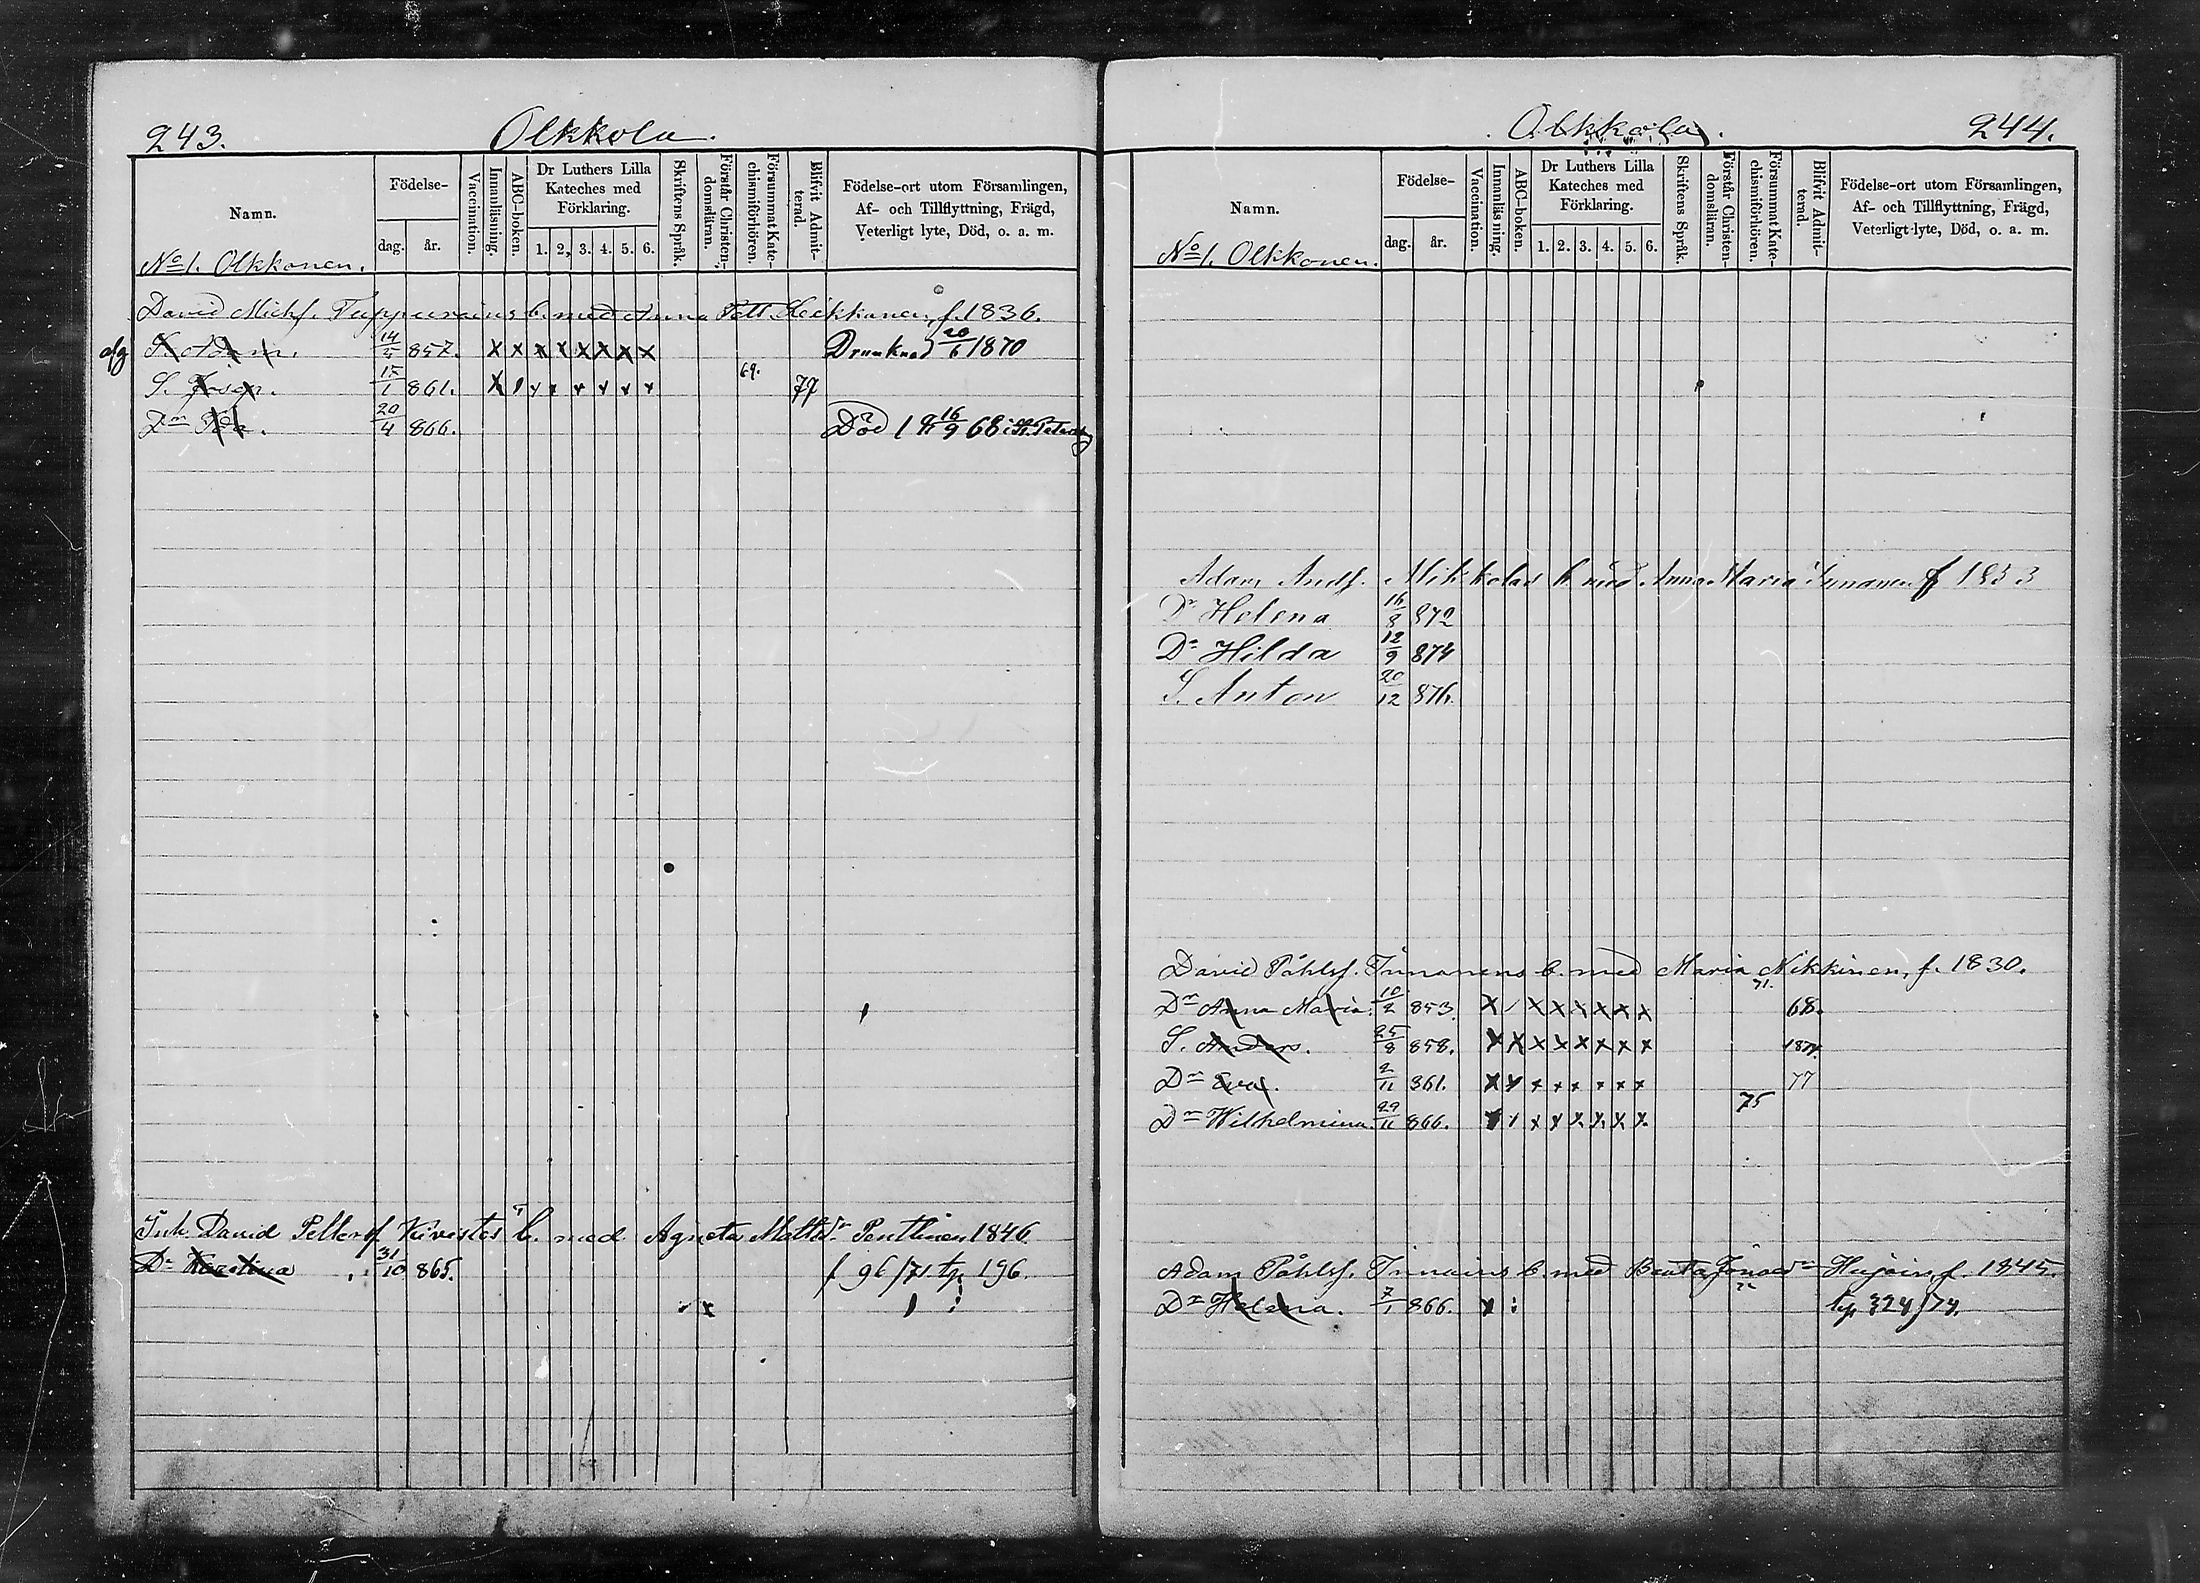 243. Olkkola.
Namn.
Födelse-
dag. år.
Vaccination.
Innanläsning.
ABC-boken.
Dr Luthers Lilla Kateches med Förklaring.
1. 2. 3. 4. 5. 6.
Skriftens Språk.
Förstår Christendomsläran.
Försummat Katechismiförhören.
Blifvit Admitterad.
Födelse-ort utom Församlingen, Af- och Tillflyttning, Frägd, Veterligt lyte, Död, o. a. m.
No 1. Olkkonen.
David Michf. Tuppurains b. med Anna Pett. Heikkanen, f. 1836.
S. Adam. 14/5 857. x x x x x x x x Drunknad 20/6 1870
S. Josep. 15/1 861. 69. 77
Dr Ida. 20/4 866. Död 18 16/9 68 i St. Petersb
Inh. David Petterf Kivistös b. med Agneta Mattsdr Penttinen 1846.
Dr Karolina 31/10 865. f 96/71. tp 196.
Olkkola. 244.
Namn.
Födelse-
dag. år.
Vaccination.
Innanläsning.
ABC-boken.
Dr Luthers Lilla Kateches med Förklaring.
1. 2. 3. 4. 5. 6.
Skriftens Språk.
Förstår Christendomsläran.
Försummat Katechismiförhören.
Blifvit Admitterad.
Födelse-ort utom Församlingen, Af- och Tillflyttning, Frägd, Veterligt lyte, Död, o. a. m.
No 1. Olkkonen.
Adam Andf. Mikkolas h med Anna Maria Innanen f 1853
Dr Helena 16/8 872
Dr Hilda 12/9 874
S. Anton 20/12 876.
David Påhlsf. Innanens b. med Maria Nikkinen, f. 1830.
Dr Anna Maria. 10/2 853. x x x x x x x 71. 68.
S. Anders. 25/8 858. x x x x x x x x 1874.
Dr Eva. 2/11 861. x x x x x x x x 77
Dr Wilhelmina. 29/11 866. x x x x x x x 75
Adam Påhlsf. Innains b. med Beata Jönsdr Hujain, f. 1845.
Dr Helena. 7/1 866. x tp 324/74.